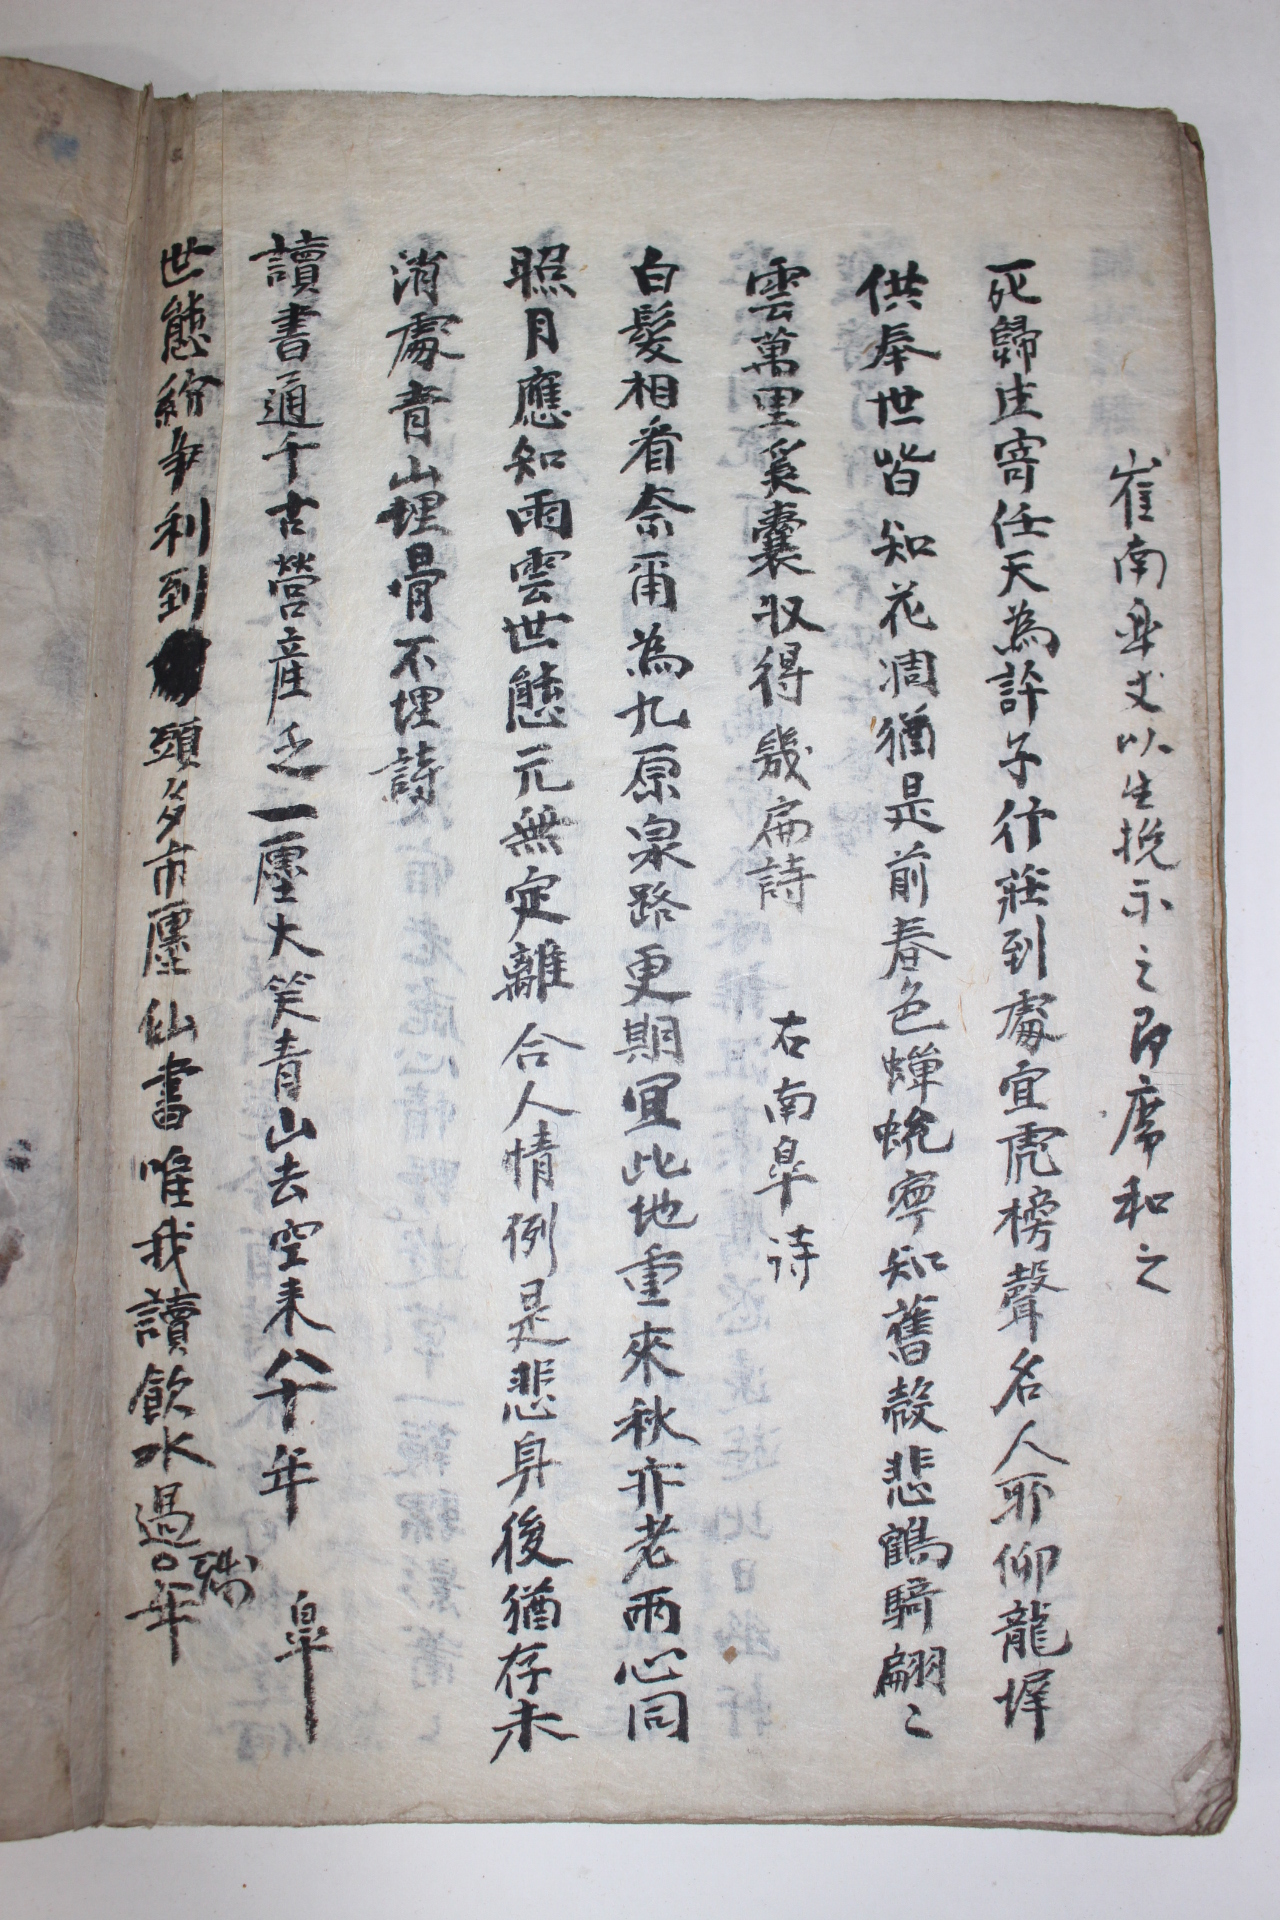 崔南皐丈以生挽示之即席和之
死歸生寄任天為許子行莊到處宜虎榜聲名人耶仰龍墀
供奉世皆知花凋猶是前春色蟬蛻寧知舊殼悲鶴騎翩〻
雲萬里奚囊收得幾扁詩 右南皐诗
白髮相看奈甭為九原泉路更期宜此地重來秋亦老兩心同
照月應知雨雲世態元無定離合人情例是悲身後猶存未
消處青山埋骨不埋詩
讀書通千古營産乏一廛大笑青山去空来八十年 皐
世態紛争利到頭多市廛仙書唯我讀飲水過〇年